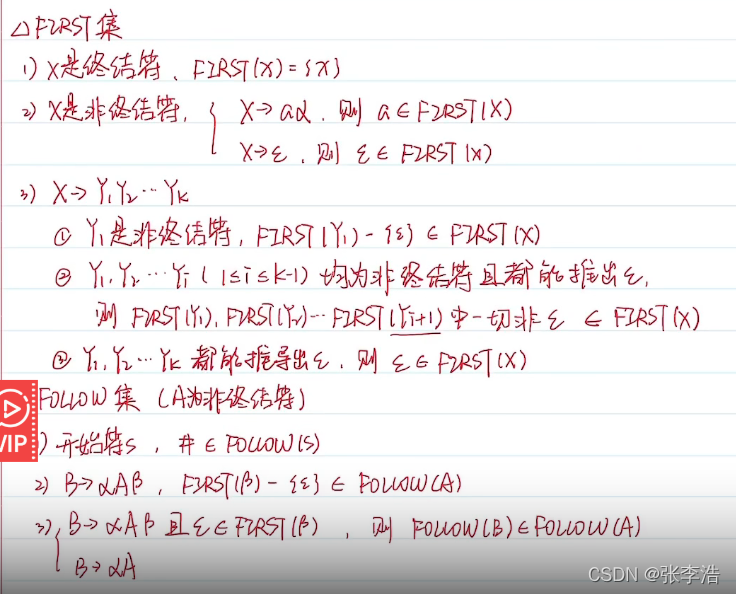 △FIRST集
1) X是终结符、FIRST(X)={X}
2) X是非终结符, { X→aα, 则 a∈FIRST(X)
X→ε, 则 ε∈FIRST(X)
3) X→Y₁Y₂…Yₖ
① Y₁是非终结符, FIRST(Y₁)-{ε}∈FIRST(X)
② Y₁,Y₂…Yᵢ (1≤i≤k-1) 均为非终结符且都能推出ε,
则 FIRST(Y₁),FIRST(Y₂)…FIRST(Yᵢ₊₁) 中一切非ε ∈ FIRST(X)
③ Y₁,Y₂…Yₖ 都能推导出ε, 则 ε∈FIRST(X)
FOLLOW集 (A为非终结符)
VIP
) 开始符S, #∈FOLLOW(S)
2) B→αAβ, FIRST(β)-{ε}∈FOLLOW(A)
3) { B→αAβ 且 ε∈FIRST(β), 则 FOLLOW(B)∈FOLLOW(A)
B→αA
CSDN @张李浩